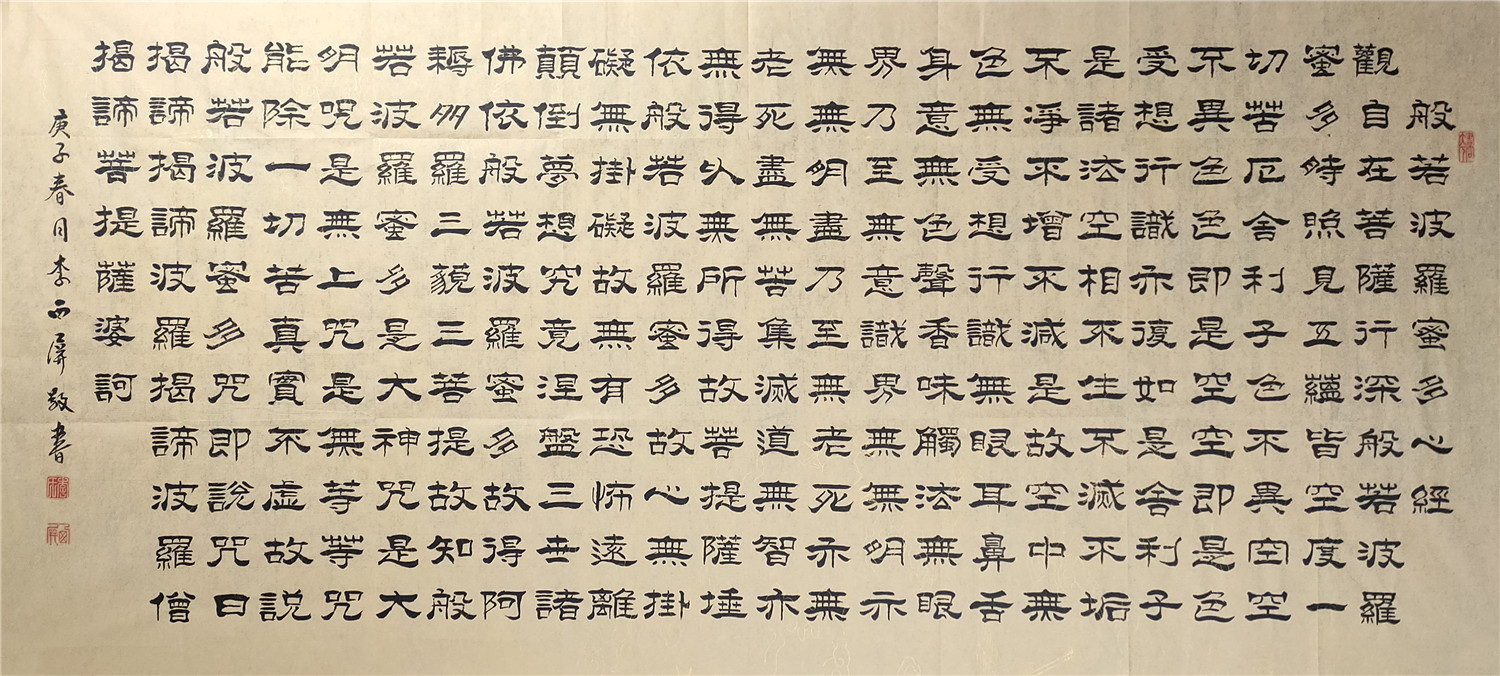 般若波羅蜜多心經
觀自在菩薩行深般若波羅
蜜多時照見五蘊皆空度一
切苦厄舍利子色不異空空
不異色色即是空空即是色
受想行識亦復如是舍利子
是諸法空相不生不滅不垢
不淨不增不減是故空中無
色無受想行識無眼耳鼻舌
身意無色聲香味觸法無眼
界乃至無意識界無無明亦
無無明盡乃至無老死亦無
老死盡無苦集滅道無智亦
無得以無所得故菩提薩埵
依般若波羅蜜多故心無掛
礙無掛礙故無有恐怖遠離
顛倒夢想究竟涅盤三世諸
佛依般若波羅蜜多故得阿
耨多羅三藐三菩提故知般
若波羅蜜多是大神咒是大
明咒是無上咒是無等等咒
能除一切苦真實不虛故說
般若波羅蜜多咒即說咒曰
揭諦揭諦波羅揭諦波羅僧
揭諦菩提薩婆訶
庚子春月李西屏敬書